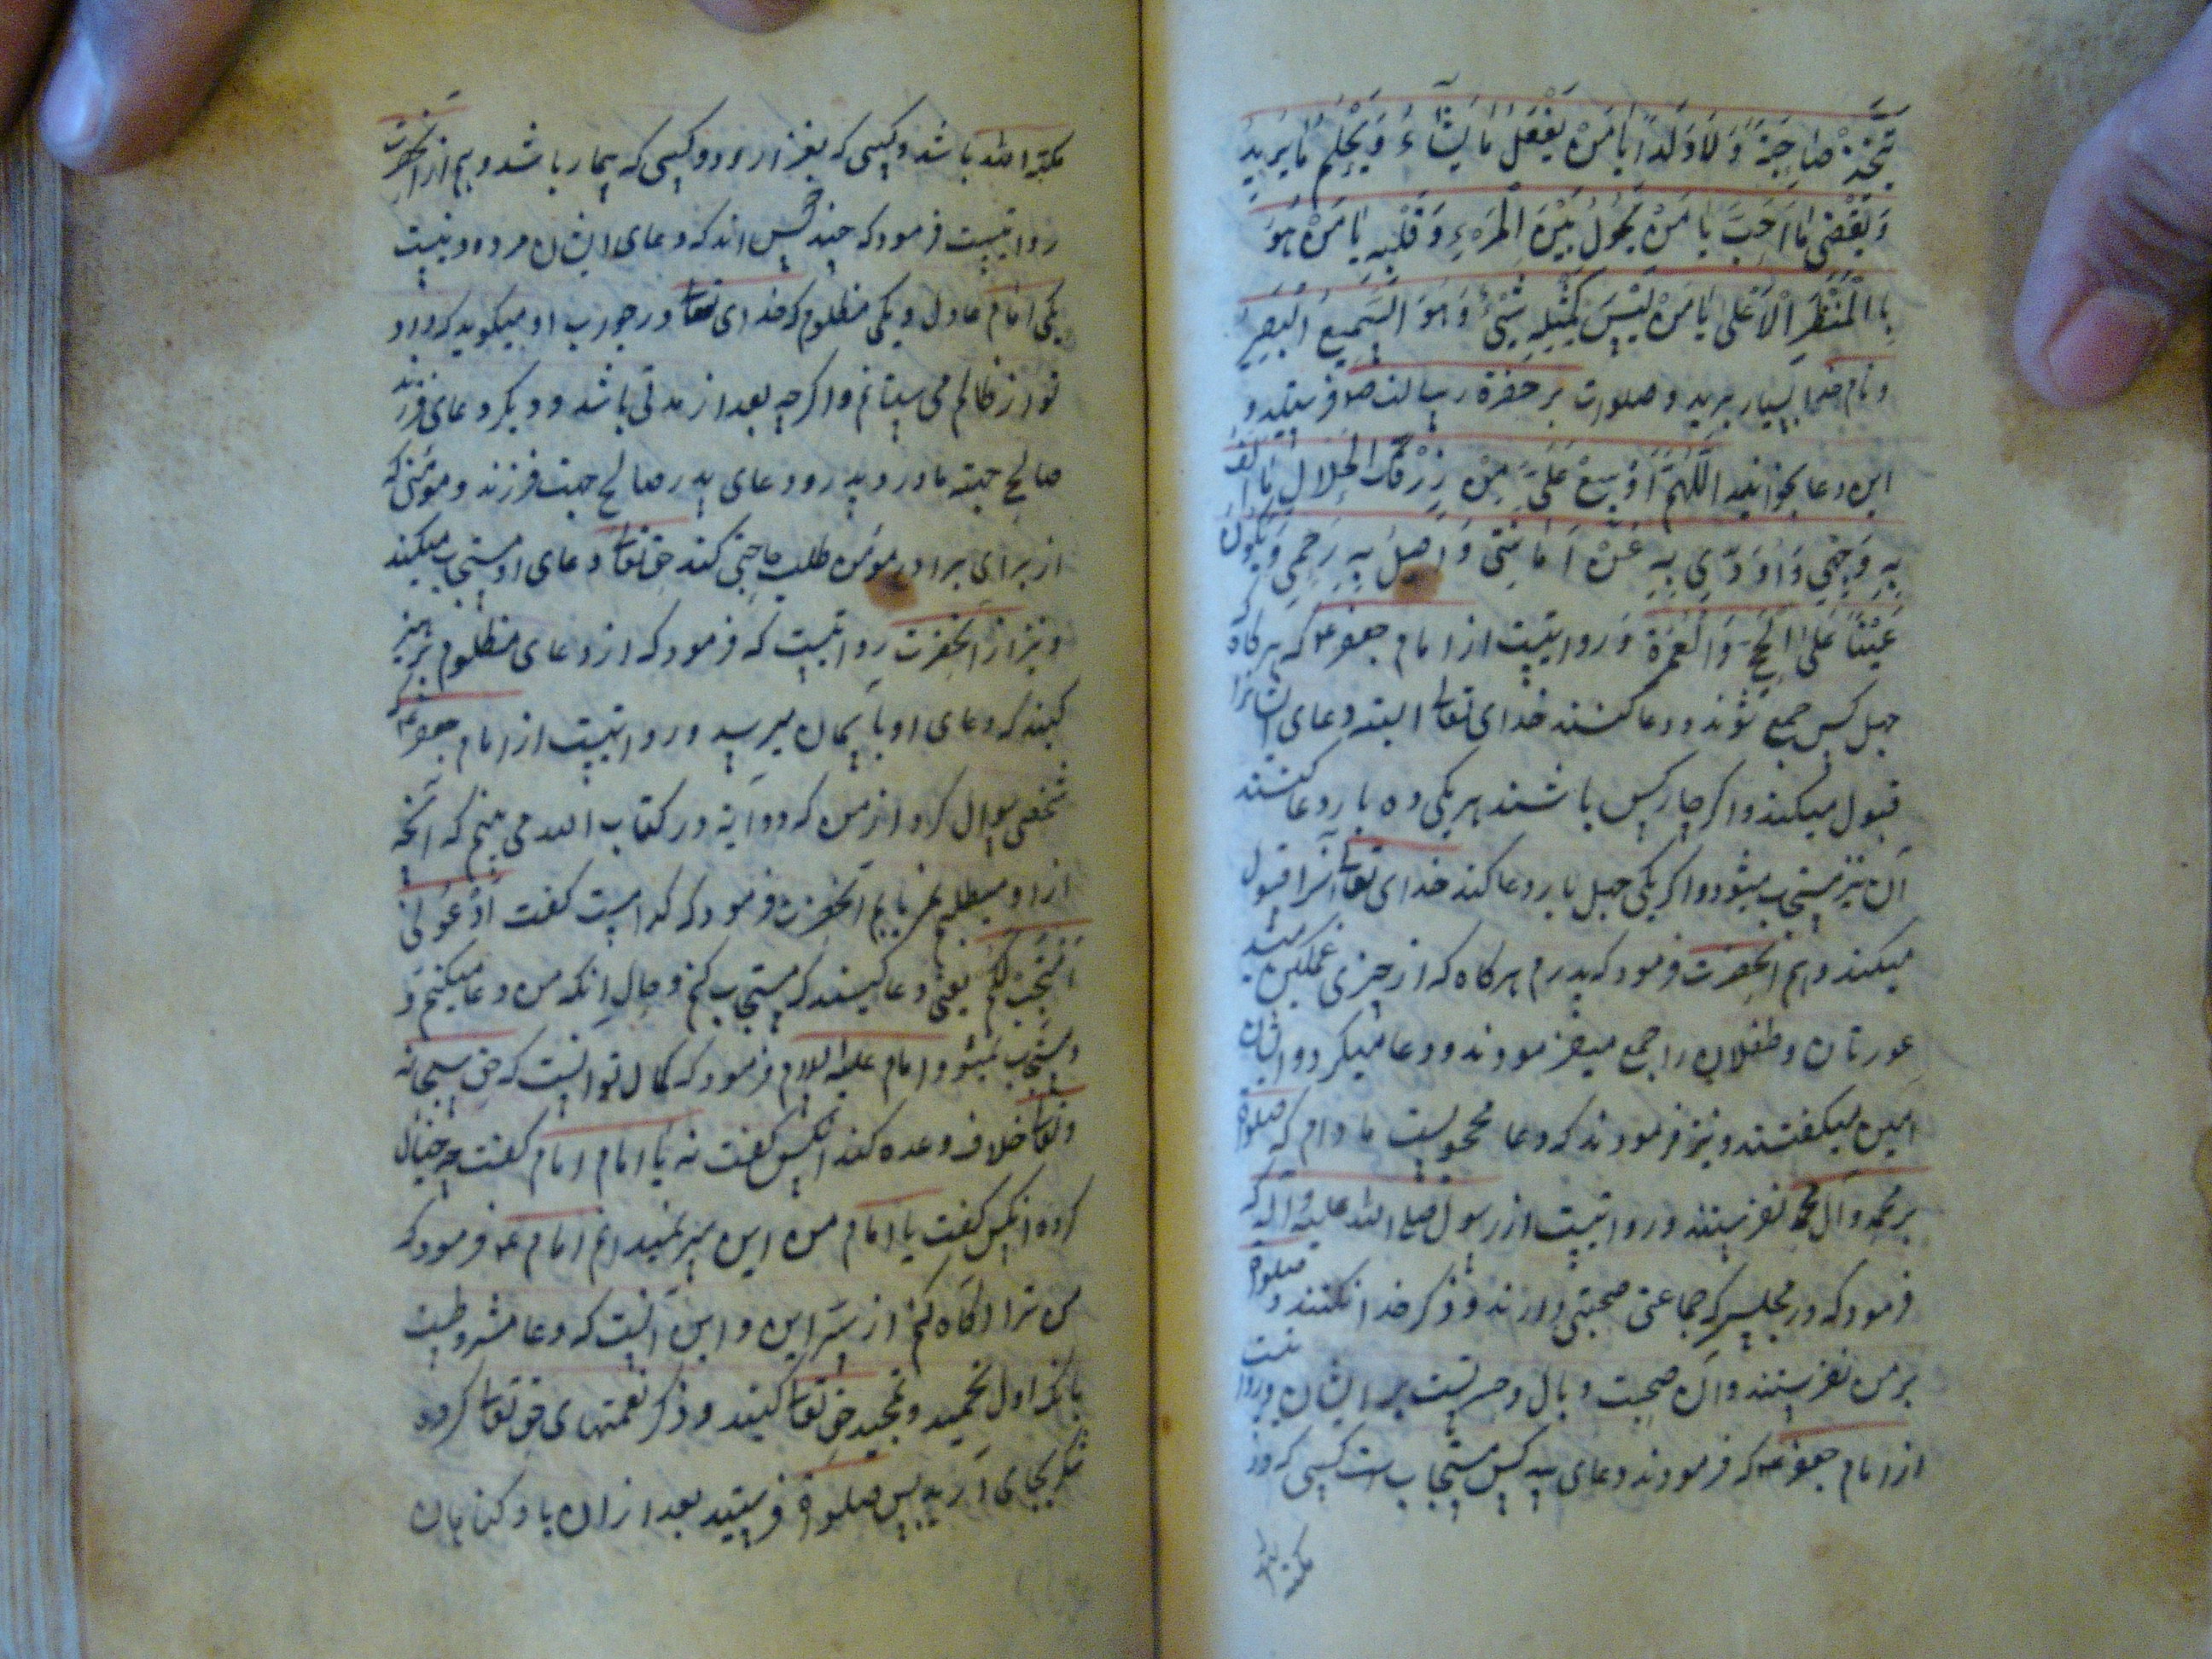 تَتَّخِذْ صَاحِبَةً وَلَا وَلَداً يَا مَنْ يَفْعَلُ مَا يَشَآءُ وَيَحْكُمُ مَا يُرِيدُ
وَيَقْضِي مَا اَحَبَّ يَا مَنْ يَحُولُ بَيْنَ الْمَرْءِ وَقَلْبِهِ يَا مَنْ هُوَ
بِالْمَنْظَرِ الْاَعْلىٰ يَا مَنْ لَيْسَ كَمِثْلِهِ شَيْءٌ وَهُوَ السَّمِيعُ الْبَصِيرُ
و نام خدا بسیار برید و صلوات بر حضرة رسالت ص فرستید و
این دعا بخوانید اَللّٰهُمَّ اَوْسِعْ عَلَيَّ مِنْ رِزْقِكَ الْحَلَالِ مَا اَكُفُّ
بِهِ وَجْهِي وَاُؤَدِّي بِهِ عَنْ اَمَانَتِي وَاَصِلُ بِهِ رَحِمِي وَيَكُونُ
عَيْناً عَلَى الْحَجِّ وَالْعُمْرَةِ و روایتست از امام جعفر ع که هرکاه که
چهل کس جمع شوند و دعا کنند خدای تعالی البته دعای ایشانرا
قبول میکند و اکر چار کس باشند هر یکی ده بار دعا کنند
آن نیز مستجاب میشود و اکر یکی چهل بار دعا کند خدای تعالی آنرا قبول
میکند و هم آنحضرت فرمود که پدرم هرکاه که از چیزی غمکین میشد
عورتان و طفلان را جمع میفرمودند و دعا میکرد و ایشان
امین میکفتند و نیز فرمودند که دعا محجوبست مادام که صلوة
بر محمد و آل محمد نفرستند و روایتست از رسول صلی الله علیه و آله که
فرمود که در مجلسی که جماعتی صحبتی دارند و ذکر خدا نکنند و صلوة
بر من نفرستند و آن صحبت وبال و حسرتست بر ایشان و روایتست
از امام جعفر ع که فرمودند دعای سه کس مستجاب است کسی که روز
مکته الله
مکته الله باشد و کسی که بغزا رود و کسی که بیمار باشد و هم از آنحضرت
روایتست فرمود که چند کس اند که دعای ایشان مردود نیست
یکی امام عادل و یکی مظلوم که خدای تعالی در جواب او میکوید که داد
تو از ظالم می ستانم و اکرچه بعد از مدتی باشد و دیکر دعای فرزند
صالح جهته مادر و پدر و دعای پدر صالح جهت فرزند و مؤمنی که
از برای برادر مؤمن طلب حاجتی کند حق تعالی دعای او مستجاب میکند
و نیز از آنحضرت روایتست که فرمود که از دعای مظلوم پرهیز
کنید که دعای او باسمان میرسد و روایتست از امام جعفر ع
شخصی سوال کرد از من که دو آیه در کتاب الله می بینم که آنچه
از او میطلبم نمی یابم آنحضرت فرمود که کدامست کفت اُدْعُونِي
اَسْتَجِبْ لَكُمْ یعنی دعا کنید که مستجاب کنم و حال انکه من دعا میکنم و
مستجاب نمیشود امام علیه السلام فرمود که کمان تو اینست که حق سبحانه
و تعالی خلاف وعده کند انکس کفت نه یا امام امام کفت چه خیال
کرده انکس کفت یا امام من این سِر نمیدانم امام ع فرمود که
من ترا اکاه کنم از سّر این و این آنست که دعا مشروطست
بانکه اول تحمید و تمجید حق تعالی کنید و ذکر نعمتهای حق تعالی کرده
شکر بجای آرید پس صلوة فرستید بعد از ان یاد کناهان